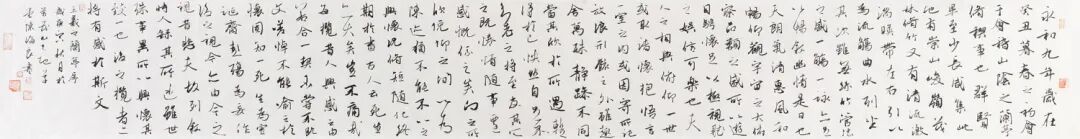 永和九年歲在
癸丑暮春之初會
于會稽山陰之蘭亭
脩稧事也群賢
畢至少長咸集此
地有崇山峻嶺茂
林脩竹又有清流激
湍暎帶左右引以
為流觴曲水列坐
其次雖無絲竹管弦
之盛一觴一詠亦足
以暢敘幽情是日也
天朗氣清惠風和
暢仰觀宇宙之大俯
察品類之盛所以遊
目騁懷足以極視聽
之娛信可樂也夫
人之相與俯仰一世
或取諸懷抱悟言
一室之內或因寄所託
放浪形骸之外雖趣
舍萬殊靜躁不同
當其欣於所遇蹔
得於己怏然自足不
知老之將至及其所
之既惓情隨事遷
感慨係之矣向之所
欣俛仰之間以為
陳迹猶不能不以之
興懷況脩短隨化終
期於盡古人云死生
亦大矣豈不痛哉
每攬昔人興感之由
若合一契未嘗不臨
文嗟悼不能喻之於
懷固知一死生為虛
誕齊彭殤為妄作
後之視今亦由今之
視昔悲夫故列敘
時人錄其所述雖世
殊事異所以興懷其
致一也後之攬者亦
將有感於斯文
王羲之蘭亭序